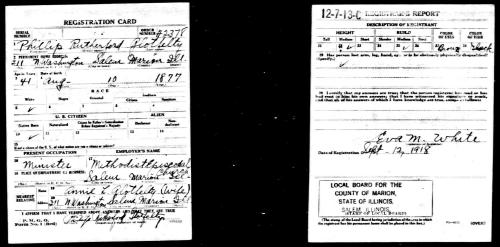 REGISTRATION CARD
SERIAL NUMBER
ORDER NUMBER
Phillip Rutherford Glotfelty
2 PERMANENT HOME ADDRESS:
311 N Washington Salem Marion Ill.
Age in Years
Date of Birth
41 Aug 10 1877
RACE
White
Negro
Oriental
Indian
Citizen
U. S. CITIZEN
ALIEN
Native Born
Naturalized
PRESENT OCCUPATION
EMPLOYER'S NAME
Minister
Methodist Episcopal Church
PLACE OF EMPLOYMENT OR BUSINESS:
Salem Marion Ill
NEAREST RELATIVE
Annie L Glotfelty (wife)
311 N Washington Salem Marion Ill
I AFFIRM THAT I HAVE VERIFIED ABOVE ANSWERS AND THAT THEY ARE TRUE
P. M. G. O.
Form No. 1 (Red)
12-7-13-C REGISTRAR'S REPORT
DESCRIPTION OF REGISTRANT
HEIGHT
BUILD
COLOR OF EYES
COLOR OF HAIR
Tall
Medium
Short
Slender
Medium
Stout
30 I certify that my answers are true; that the person registered has read or has had read to him his own answers; that I have witnessed his signature or mark, and that all of his answers of which I have knowledge are true, except as follows:
Eva M. White
Date of Registration Sept 12, 1918
LOCAL BOARD FOR THE
COUNTY OF MARION,
STATE OF ILLINOIS,
SALEM, ILLINOIS.
(STAMP OF LOCAL BOARD)